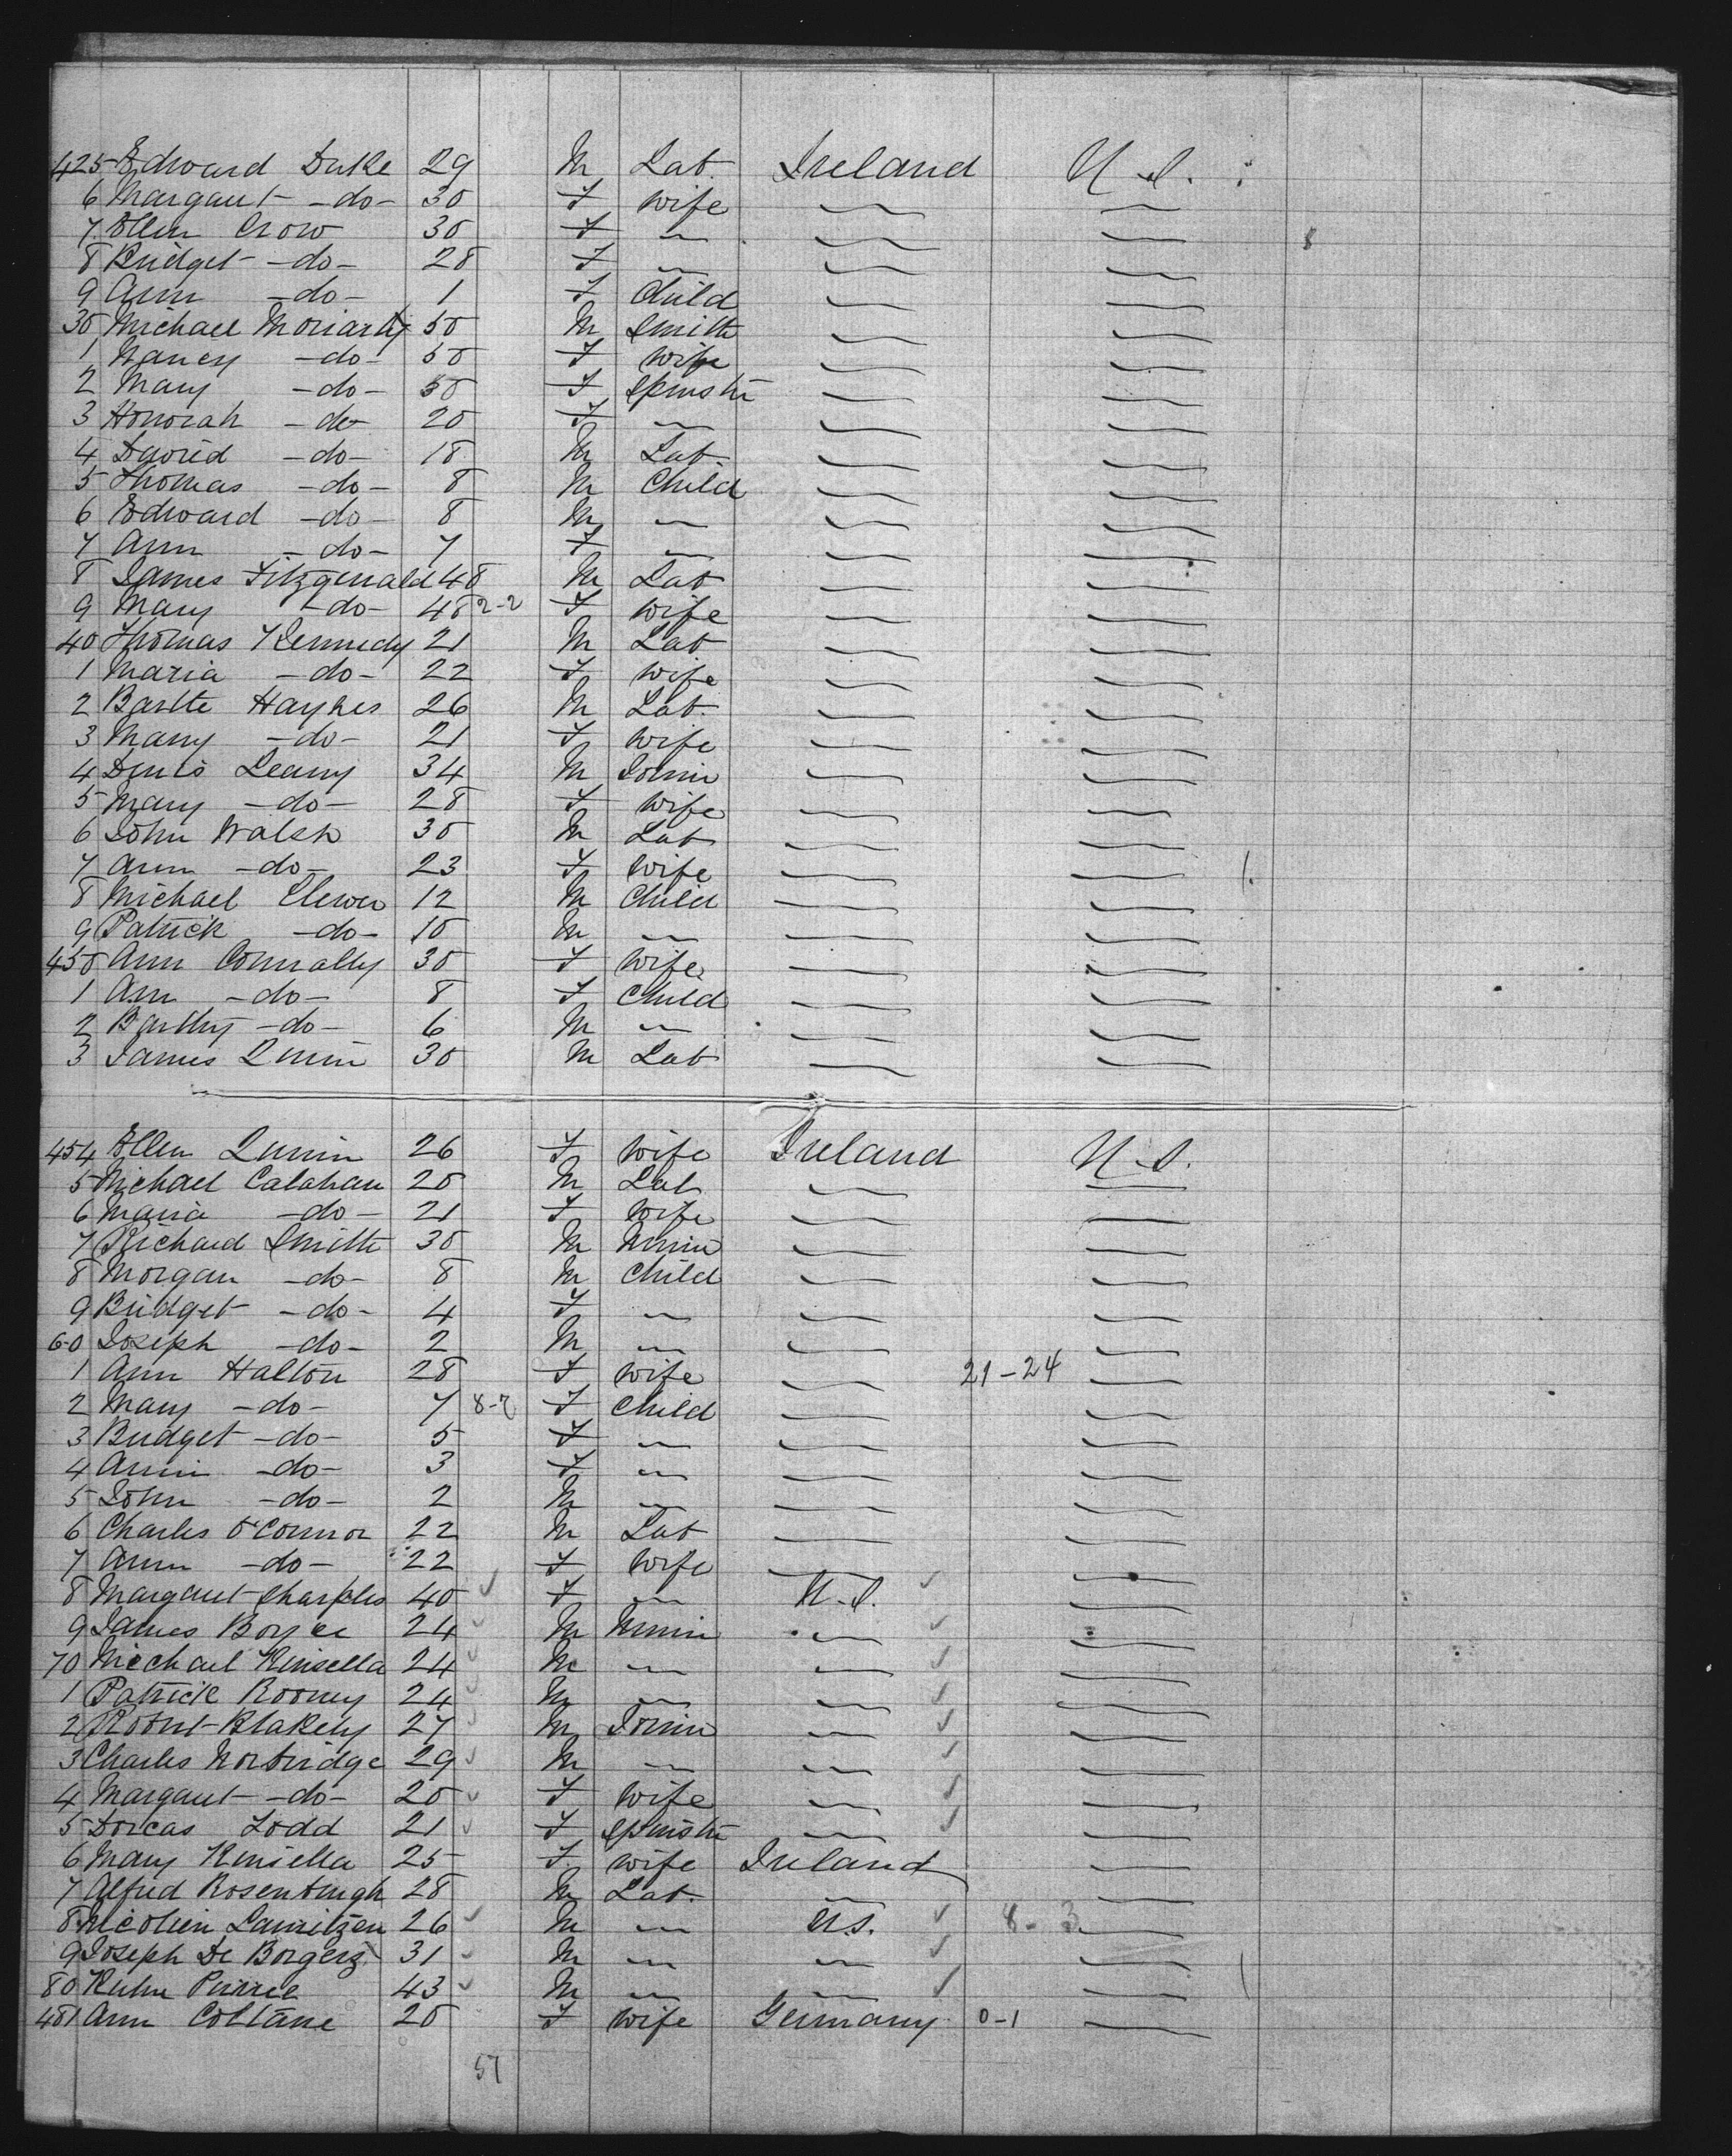 425 Edward Duke 29 M Lab. Ireland U.S.
6 Margaret -do- 30 F Wife
7 Ellen Crow 30 F "
8 Bridget -do- 28 F "
9 Ann -do- 1 F Child
30 Michael Moriarty 50 M Smith
1 Nancy -do- 50 F Wife
2 Mary -do- 30 F Spinstr
3 Honorah -do- 20 F "
4 David -do- 18 M Lab.
5 Thomas -do- 8 M Child
6 Edward -do- 8 M "
7 Ann -do- 7 F "
8 James Fitzgerald 48 M Lab
9 Mary -do- 48 2-2 F Wife
40 Thomas Kennedy 21 M Lab
1 Maria -do- 22 F Wife
2 Hayhes 26 M Lab.
3 Mary -do- 21 F Wife
4 Denis Leary 34 M
5 Mary -do- 28 F Wife
6 John Walsh 30 M Lab
7 Ann -do- 23 F Wife
8 Michael 12 M Child
9 Patrick -do- 10 M "
450 Ann Connally 30 F Wife
1 Ann -do- 8 F Child
2 Barthy -do- 6 M "
3 James Quinn 30 M Lab
454 Ellen Quinn 26 F Wife Ireland U.S.
5 Michael Calahan 20 M Lab
6 Maria -do- 21 F Wife
7 Richard Smith 30 M
8 Morgan -do- 8 M Child
9 Bridget -do- 4 F "
60 Joseph -do- 2 M "
1 Ann Halton 28 F Wife 21-24
2 Mary -do- 7 8-7 F Child
3 Bridget -do- 5 F "
4 Annie -do- 3 F "
5 John -do- 2 M "
6 Charles O'Connor 22 M Lab
7 Ann -do- 22 F Wife
8 Margaret Sharples 40 F " U.S.
9 James Boyce 24 M "
70 Michael Kinsella 24 M " "
1 Patrick Rooney 24 M " "
2 Robert Blakely 27 M "
3 Charles Norbridge 29 M " "
4 Margaret -do- 20 F Wife "
5 Dorcas Todd 21 F Spinstr "
6 Mary Kinsella 25 F Wife Ireland
7 Alfred Rosenburgh 28 M Lab. "
8 Lauritzen 26 M " U.S. 8-3
9 Joseph De Borgers 31 M " "
80 Pierre 43 M " "
481 Ann Coltane 20 F Wife Germany 0-1
57